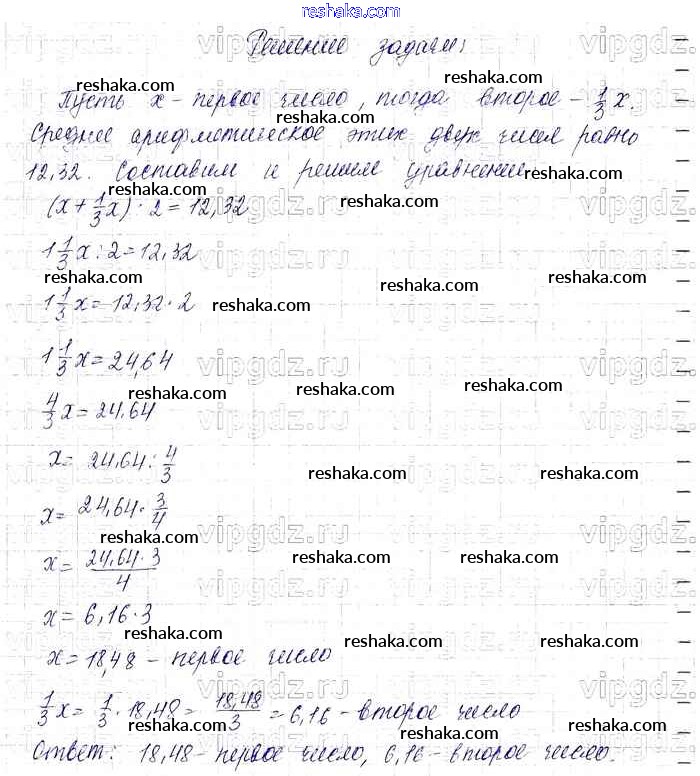 reshaka.com
Решение задачи:
Пусть x - первое число, тогда второе - 1/3 x.
Среднее арифметическое этих двух чисел равно
12,32. Составим и решим уравнение
(x + 1/3 x) · 2 = 12,32
1 1/3 x : 2 = 12,32
1 1/3 x = 12,32 · 2
1 1/3 x = 24,64
4/3 x = 24,64
x = 24,64 : 4/3
x = 24,64 · 3/4
x = 24,64 · 3 / 4
x = 6,16 · 3
x = 18,48 - первое число
1/3 x = 1/3 · 18,48 = 18,48/3 = 6,16 - второе число
Ответ: 18,48 - первое число, 6,16 - второе число.
vipgdz.ru
reshaka.com